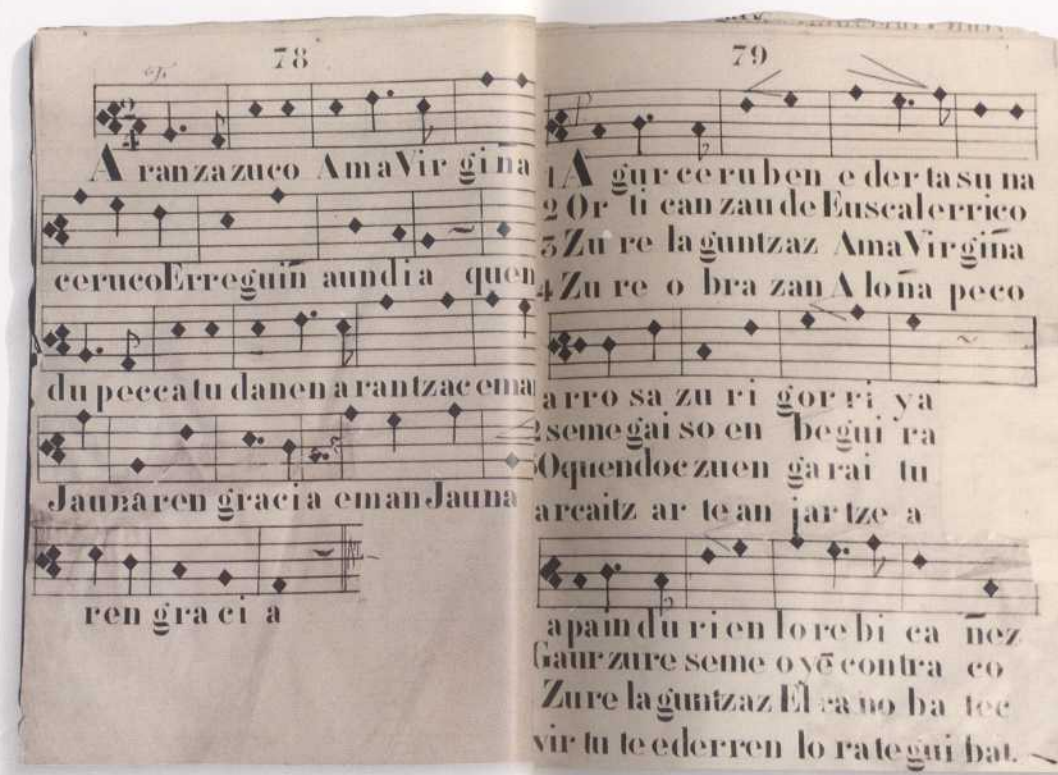 78
A ranzazuco Ama Virgiña
ceruco Erreguiñ aundia quen
du peccatu danen arantzac eman
Jaunaren gracia eman Jauna
ren gracia
79
1 A gur ceruben e der ta su na
2 Or ti can zau de Euscalerrico
3 Zu re laguntzaz Ama Virgiña
4 Zu re o bra zan A loña peco
arro sa zu ri gor ri ya
2 seme gai so en begui ra
Oquendoc zuen garai tu
arcaitz ar te an jar tze a
apaindu ri en lo re bi ca ñez
Gaur zure seme contra co
Zure laguntzaz El ca no ba tec
vir tu te ederren lo rategui bat.